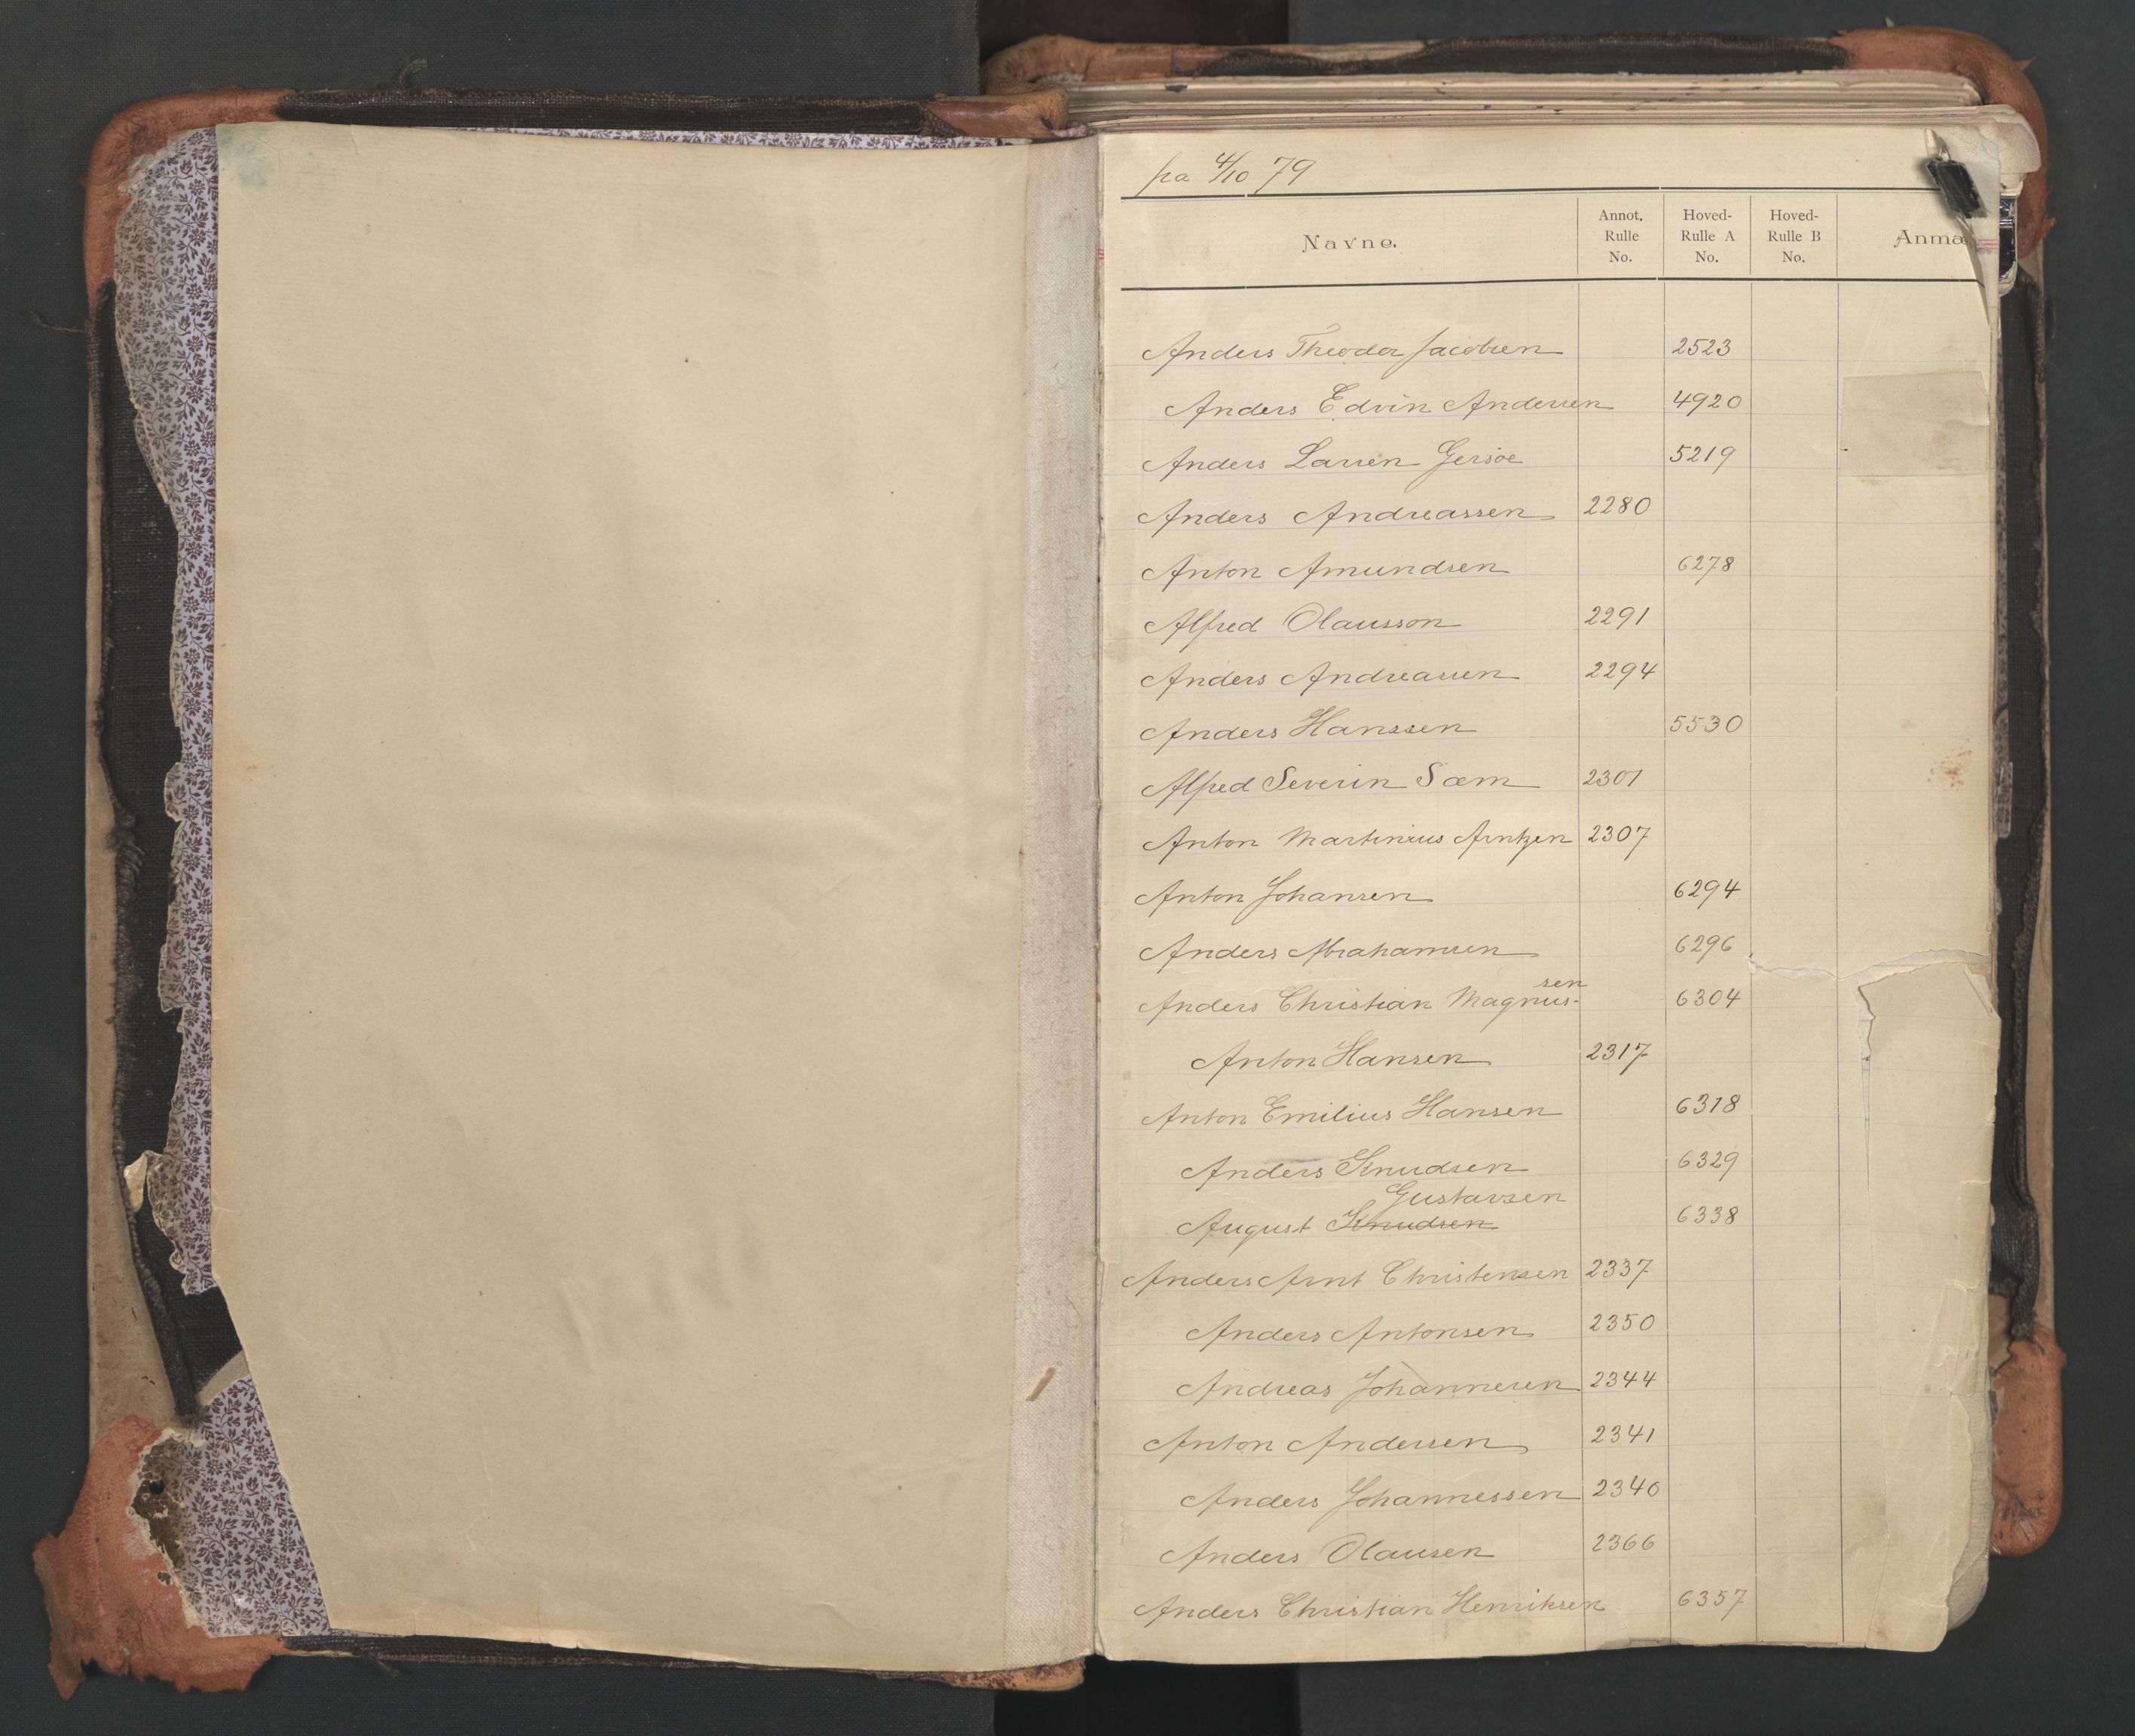 fra 4/10 79
Navne. Annot. Rulle No. Hoved-Rulle A No. Hoved-Rulle B No. Anmæ
Anders Theodor Jacobsen 2523
Anders Edvin Andersen 4920
Anders Larsen Gersøe 5219
Anders Andreassen 2280
Anton Amundsen 6278
Alfred Olausson 2291
Anders Andreassen 2294
Anders Hanssen 5530
Alfred Severin Sæm 2301
Anton Martinius Arntzen 2307
Anton Johansen 6294
Anders Abrahamsen 6296
sen
Anders Christian Magnus- 6304
Anton Hansen 2317
Anton Emilius Hansen 6318
Anders Knudsen 6329
Gustavsen
August Knudsen 6338
Anders Arnt Christensen 2337
Anders Antonsen 2350
Andreas Johannesen 2344
Anton Andersen 2341
Anders Johannessen 2340
Anders Olausen 2366
Anders Christian Henriksen 6357